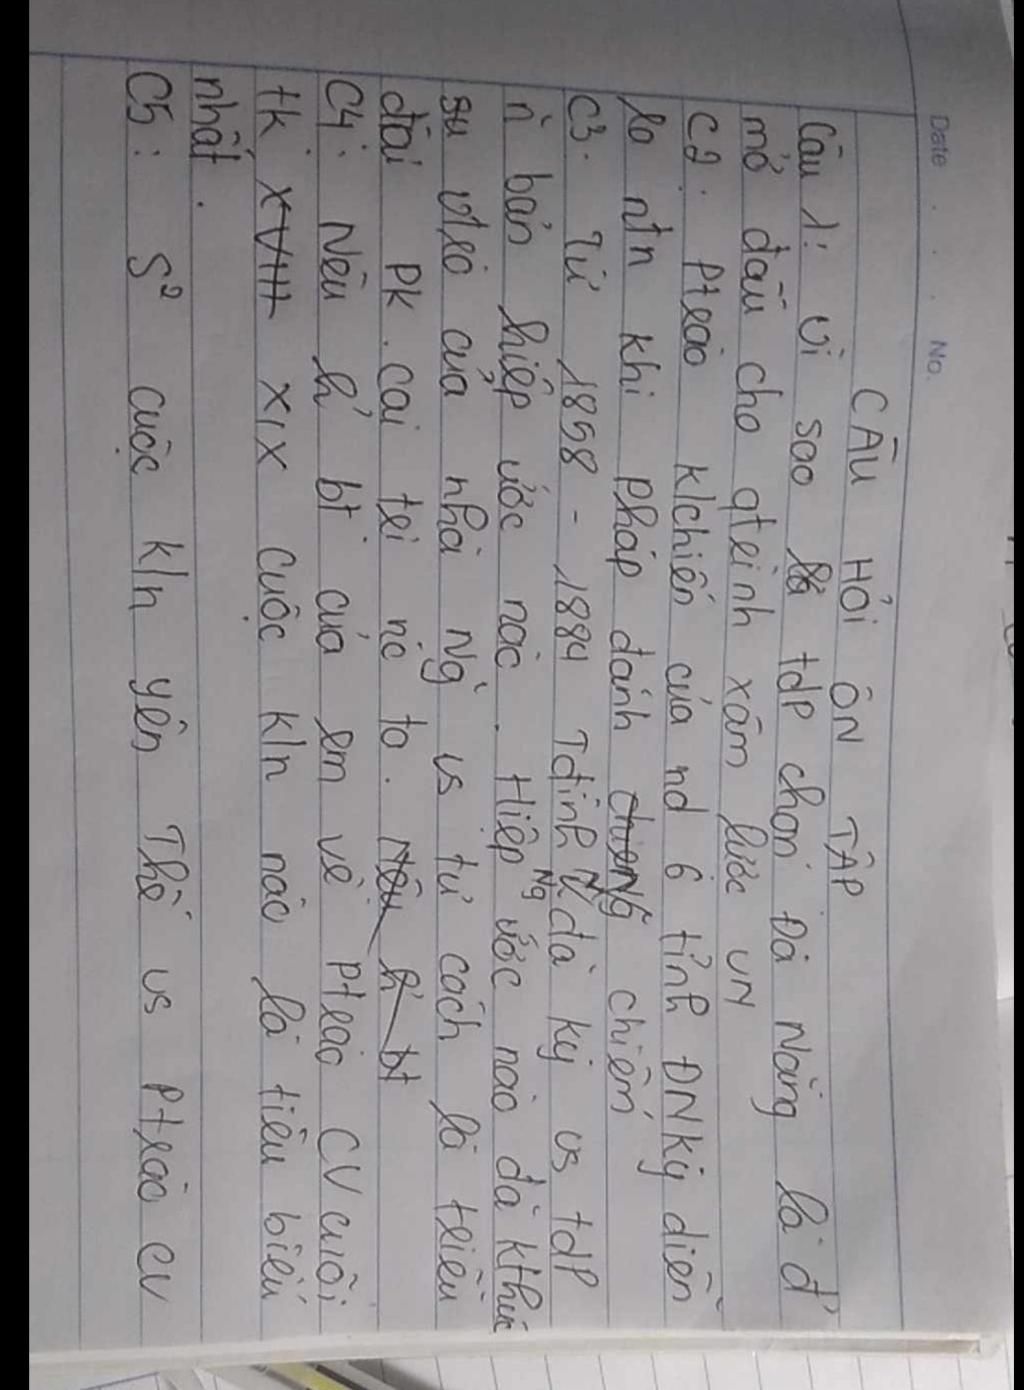 Date . . . No.
CÂU HỎI ÔN TẬP
Câu 1: Vì sao tdp chọn Đà Nẵng là đ'
mở đầu cho qtrình xâm lược VN
C2. Ptrào k/chiến của nd 6 tỉnh ĐNkỳ diễn
ra ntn khi pháp đánh chiếm
C3. Từ 1858 - 1884 Tđình N Ng đã ký vs tdp
n~ bản hiệp ước nào. Hiệp ước nào đã kthúc
sự vtrò của nhà Ng~ vs tư cách là triều
đại PK. cai trị nc ta. Nêu h' bt
C4: Nêu h' bt của em về Ptrào CV cuối
tk XVIII XIX Cuộc k/n nào là tiêu biểu
nhất.
C5: S² cuộc k/n yên Thế vs Ptrào CV